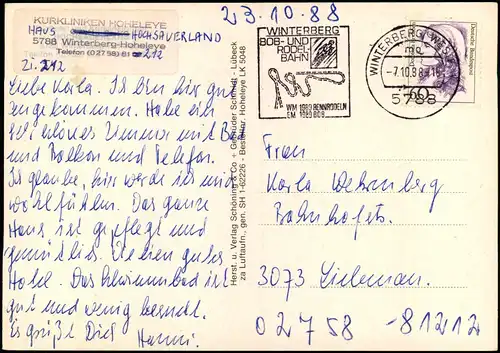 23.10.88
KURKLINIKEN HOHELEYE
HAUS HOCHSAUERLAND
5788 Winterberg-Hoheleye
Telefon (02758) 81-212
Zi. 212
Liebe Karla. Ich bin hier gut
angekommen. Habe ein
schönes Zimmer mit Bad
und Balkon und Telefon.
Ich glaube, hier werde ich mich
wohl fühlen. Das ganze
Haus ist gepflegt und
gemütlich. Wie ein gutes
Hotel. Das Schwimmbad ist
gut und wenig besucht.
Es grüßt Dich Hanni.
Herst. u. Verlag Schöning & Co + Gebrüder Schmidt - Lübeck
za Luftaufn., gen. SH 1-62226 - Bestellnr. Hoheleye LK 5048
WINTERBERG
BOB-UND
RODEL
BAHN
WM 1989 RENNRODELN
EM 1989 BOB
WINTERBERG, WESTF
-7.10.88
5788
Deutsche Bundespost
60
Frau
Karla
Bahnhofstr.
3073 Liebenau
02758 -81212